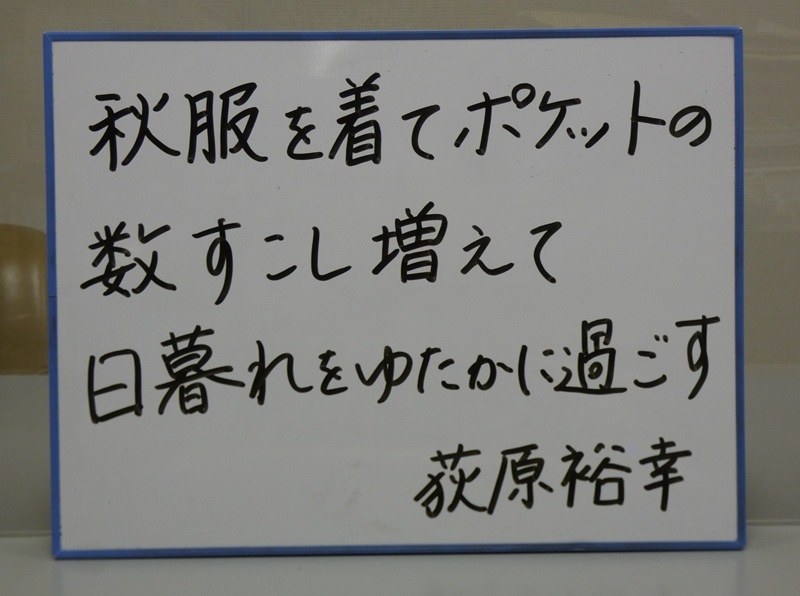 秋服を着てポケットの
数すこし増えて
日暮れをゆたかに過ごす
荻原裕幸